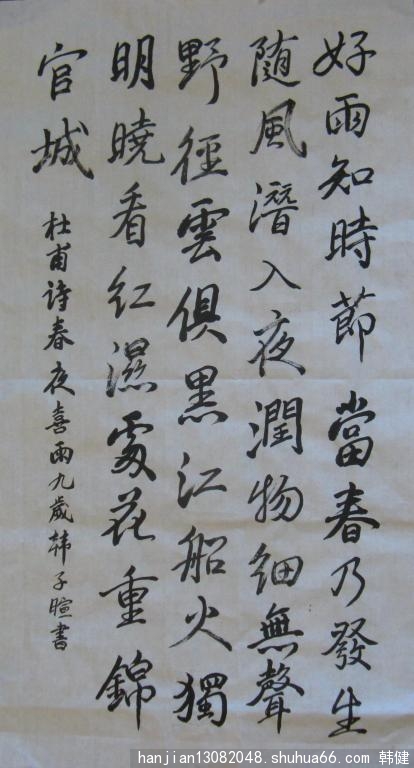 好雨知時節當春乃發生
随風潛入夜潤物細無聲
野徑雲俱黑江船火獨
明曉看紅濕處花重錦
官城
杜甫诗春夜喜雨九歲韩子暄書
hanjian13082048. shuhua66. com 韩健